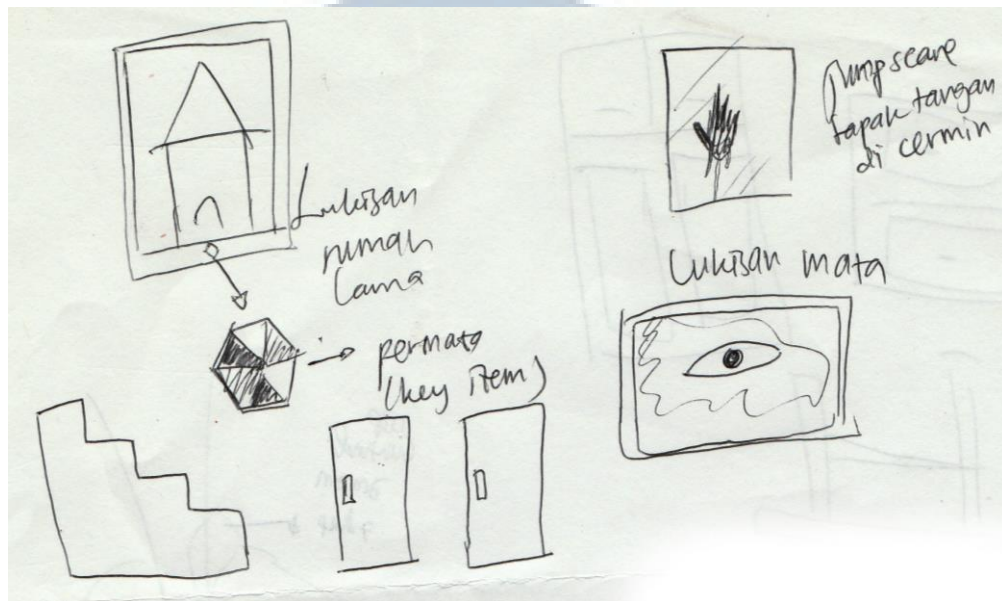 Lukisan
rumah
lama
permata
(key item)
Jumpscare
tapak tangan
di cermin
Lukisan mata